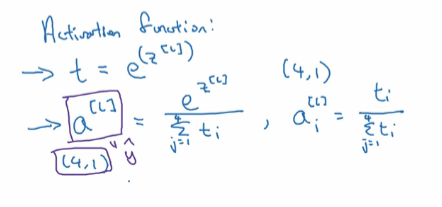 Activation function:
→ t = e^(z^[L])
(4,1)
→ a^[L] = e^z^[L] / Σ_{j=1}^{4} t_i , a_i^[L] = t_i / Σ_{j=1}^{4} t_i
(4,1) " ŷ